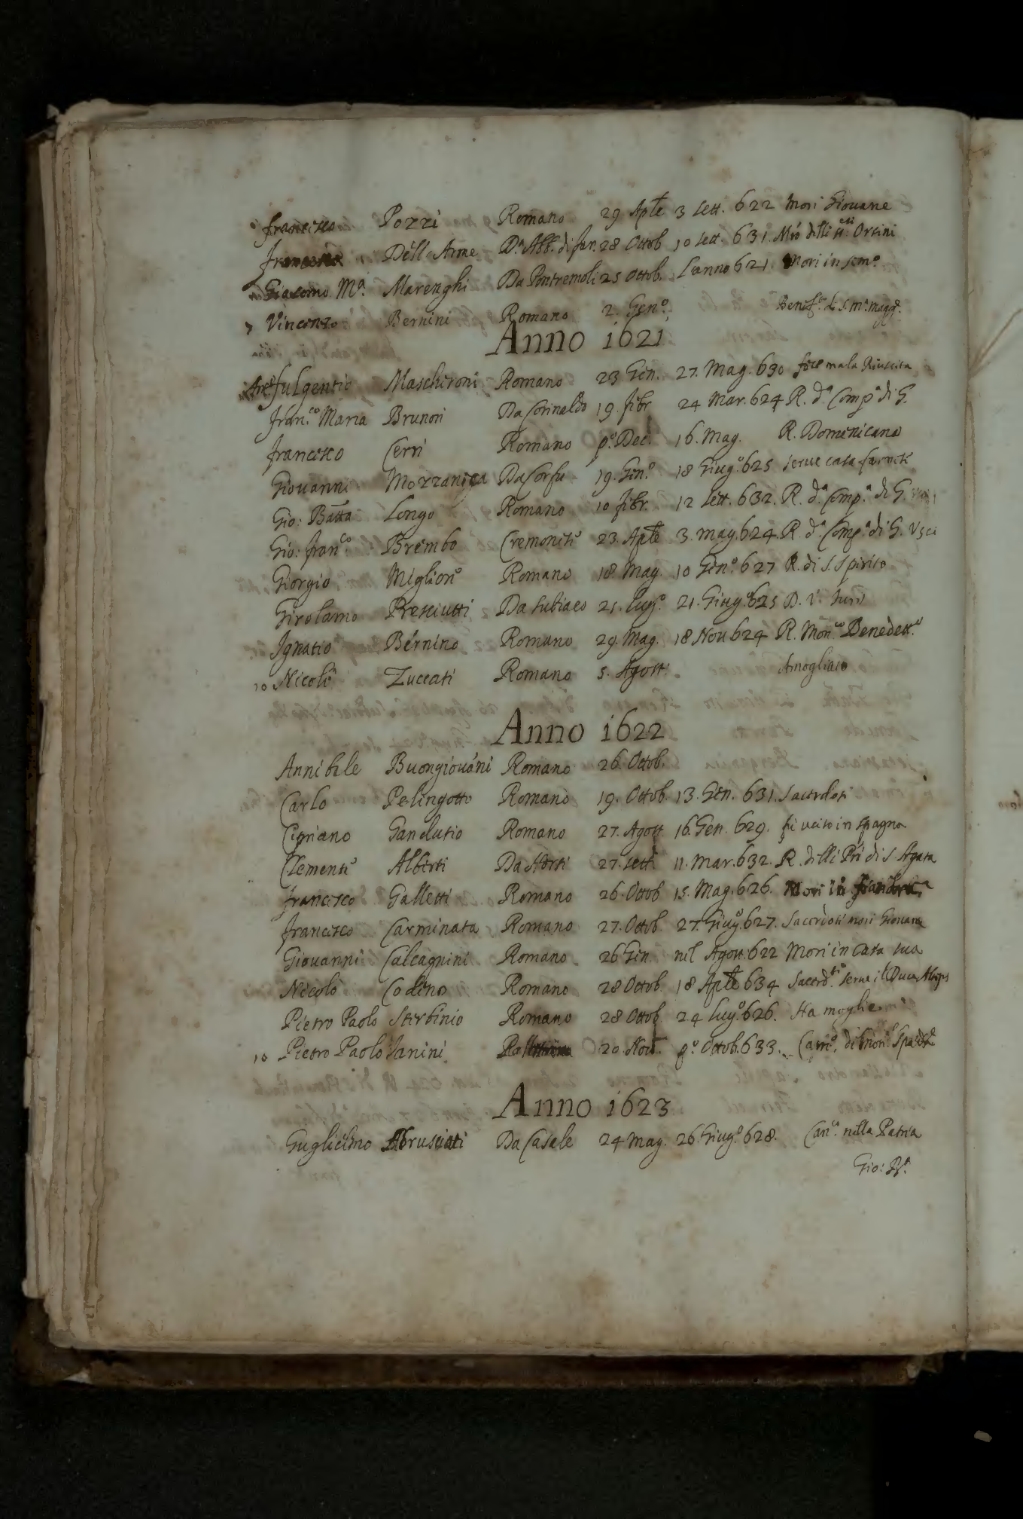 Francesco Pozzi Romano 29 Aple 3 Sett. 622 Morì Giovane
Dell'Arme Da 28 Ottob 10 Sett. 631. Orsini
Giacomo Ma. Marenghi Da Pontremoli 25 Ottob. L'anno 621. Morì in
Vincenzo Bernini Romano 2. Geno.
Anno 1621
Fulgentio Mascheroni Romano 23 Gen. 27. Mag. 630 fece mala Riuscita
Fran.co Maria Brunori Da Corinaldo 19 febr 24 Mar. 624 R. d.a Comp.a di G.
Francesco Cerri Romano po. Dec. 16. Mag. R. Domenicano
Giovanni Mozzanica Da Corfu 19. Geno. 18 Giugo. 625 serve casa
Gio: Batta Longo Romano 10 febr. 12 Sett. 632. R. d.a Comp.a di G.
Gio: Fran.co Brembo Cremonese 23. Aple 3. Mag. 624. R. d.a Comp.a di G. Uscì
Giorgio Miglioro Romano 18 Mag. 10 Geno. 627 R. di S. Spirito
Girolamo Presciutti Da Subiaco 21. Lugo. 21. Giugo. 625 D. V.
Ignatio Bernino Romano 29 Mag. 18 Nov 624 R.
10 Nicolò Zuccati Romano 5. Agost. Amogliato
Anno 1622
Annibale Buongiovani Romano 26. Ottob.
Carlo Pelingotto Romano 19. Ottob. 13. Gen. 631. Sacerdote
Cipriano Gandutio Romano 27. Agost 16. Gen. 629. fù ucciso in Spagna
Clemente Alberti 27. Sett. 11. Mar. 632. R. delli Pri di S. Agata
Francesco Galletti Romano 26. Ottob 15. Mag. 626. Morì in
Francesco Carminata Romano 27. Ottob 27. Giugo. 627. Sacerdote morì Giovane
Giovanni Calcagnini Romano 26 Gen. nel Agost 622 Morì in Casa sua
Nicolò Codino Romano 28 Ottob 18 Aple 634 serve il Duca
Pietro Paolo Sterbinio Romano 28 Ottob 24 Lugo. 626. Ha moglie
10 Pietro Paolo Ianini 20. Nov. po. Ottob. 633.
Anno 1623
Guglielmo Abrusciati Da Casale 24 Mag. 26 Giugo. 628. Cano. nella Patria
Gio: Ba.